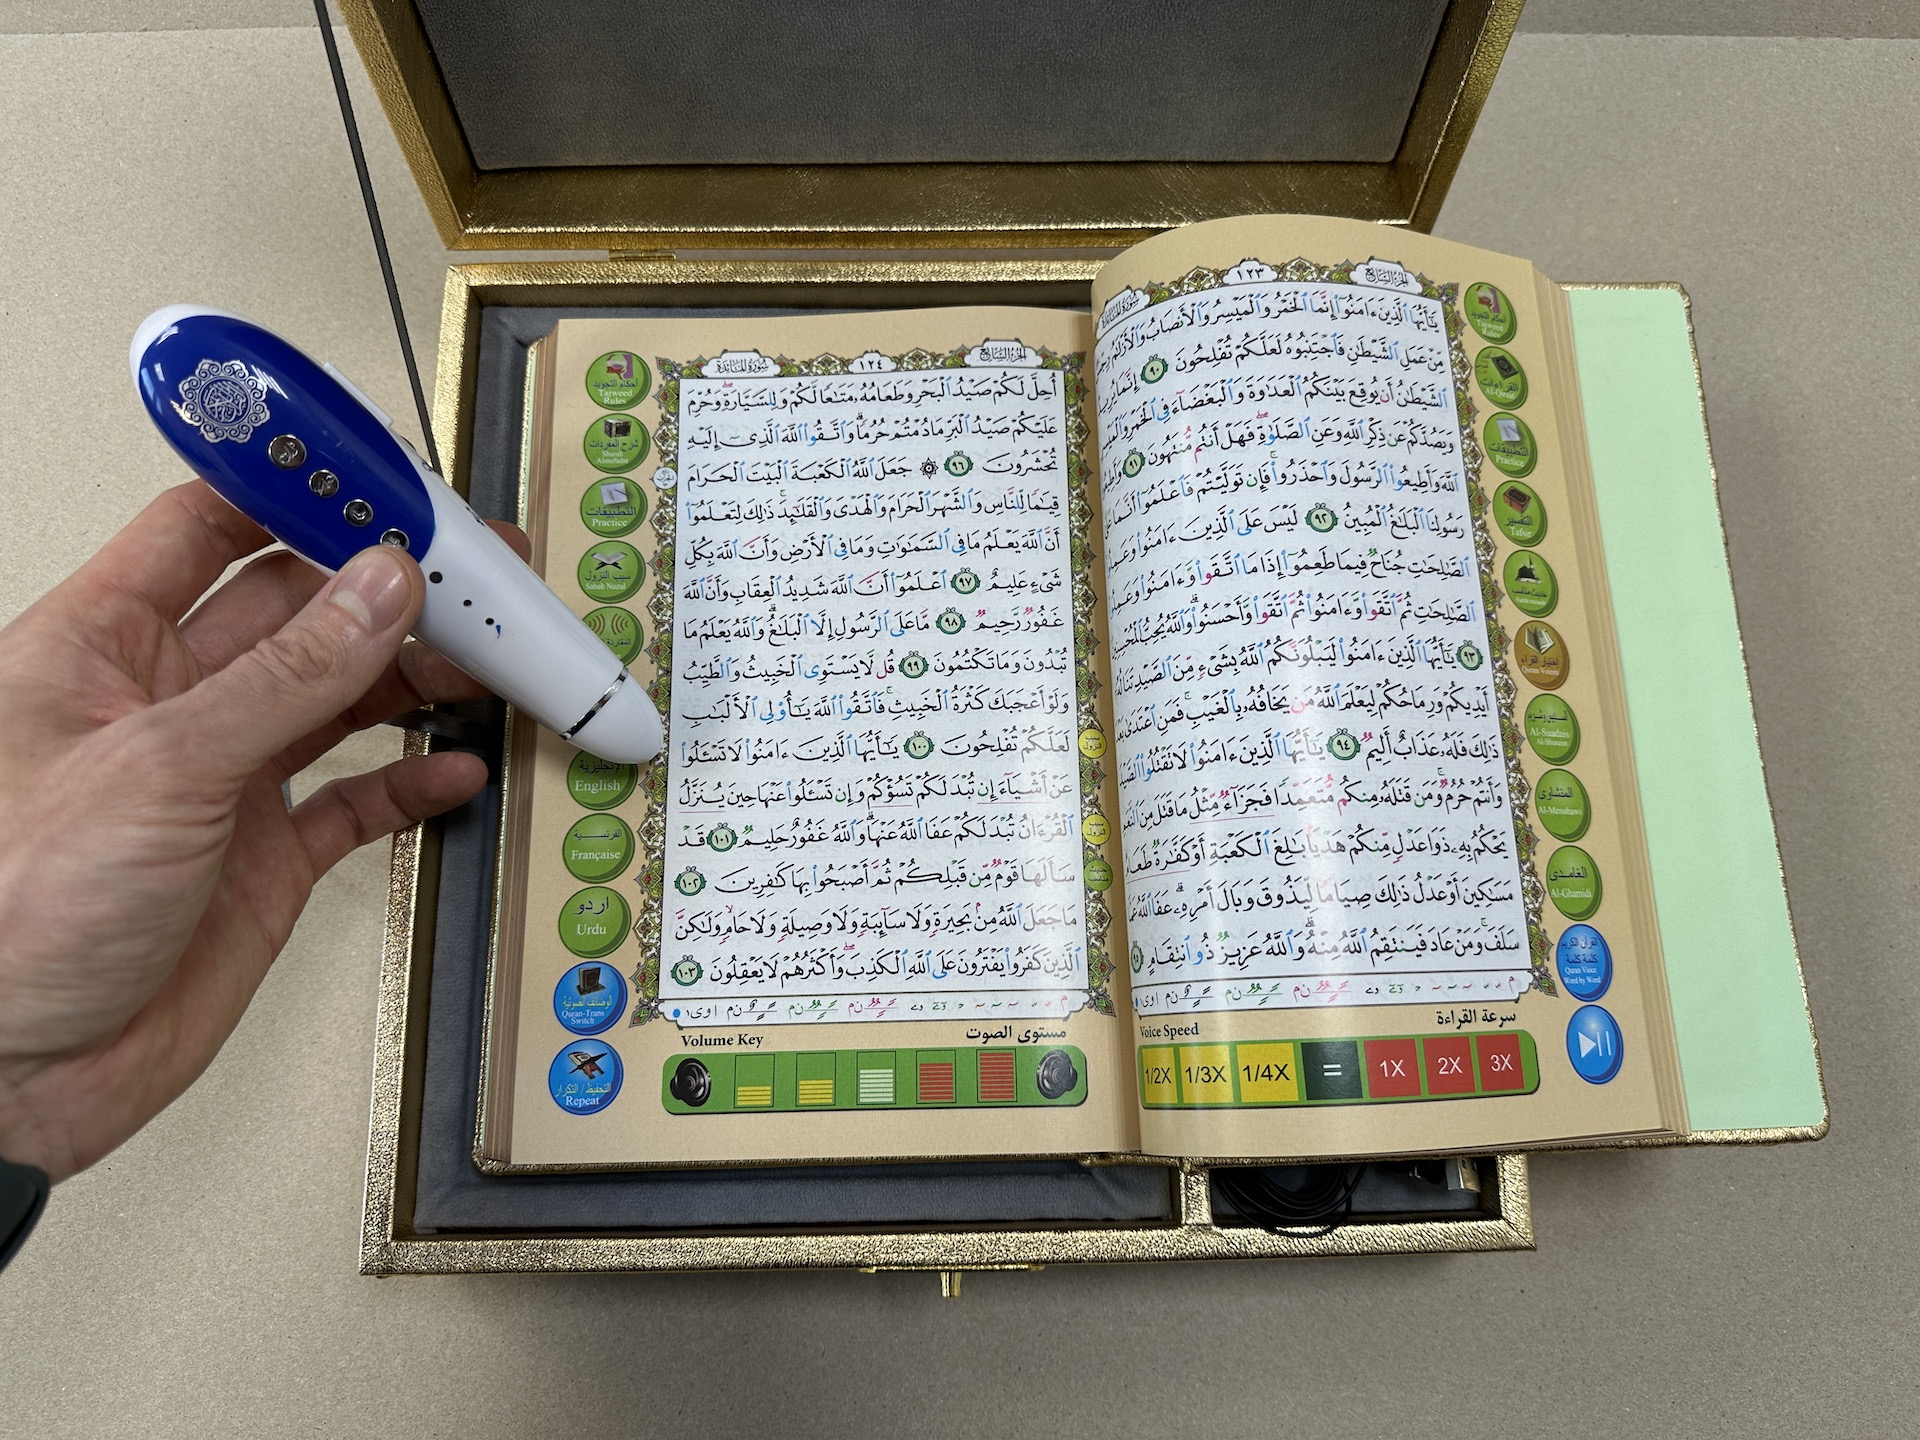 سُورَةُ المَائِدَة
١٢٣
الجُزءُ السَّابِع
يَـٰٓأَيُّهَا ٱلَّذِينَ ءَامَنُوٓا۟ إِنَّمَا ٱلْخَمْرُ وَٱلْمَيْسِرُ وَٱلْأَنصَابُ وَٱلْأَزْلَـٰمُ
مِّنْ عَمَلِ ٱلشَّيْطَـٰنِ فَٱجْتَنِبُوهُ لَعَلَّكُمْ تُفْلِحُونَ ٩٠ إِنَّمَا
ٱلشَّيْطَـٰنُ أَن يُوقِعَ بَيْنَكُمُ ٱلْعَدَٰوَةَ وَٱلْبَغْضَآءَ فِى ٱلْخَمْرِ
وَيَصُدَّكُمْ عَن ذِكْرِ ٱللَّهِ وَعَنِ ٱلصَّلَوٰةِ فَهَلْ أَنتُم مُّنتَهُونَ ٩١
ٱللَّهَ وَأَطِيعُوا۟ ٱلرَّسُولَ وَٱحْذَرُوا۟ فَإِن تَوَلَّيْتُمْ فَٱعْلَمُوٓا۟ أَنَّمَا
رَسُولِنَا ٱلْبَلَـٰغُ ٱلْمُبِينُ ٩٢ لَيْسَ عَلَى ٱلَّذِينَ ءَامَنُوا۟
ٱلصَّـٰلِحَـٰتِ جُنَاحٌ فِيمَا طَعِمُوٓا۟ إِذَا مَا ٱتَّقَوا۟ وَّءَامَنُوا۟
ٱلصَّـٰلِحَـٰتِ ثُمَّ ٱتَّقَوا۟ وَّءَامَنُوا۟ ثُمَّ ٱتَّقَوا۟ وَّأَحْسَنُوا۟ وَٱللَّهُ يُحِبُّ
٩٣ يَـٰٓأَيُّهَا ٱلَّذِينَ ءَامَنُوا۟ لَيَبْلُوَنَّكُمُ ٱللَّهُ بِشَىْءٍ مِّنَ ٱلصَّيْدِ
أَيْدِيكُمْ وَرِمَاحُكُمْ لِيَعْلَمَ ٱللَّهُ مَن يَخَافُهُۥ بِٱلْغَيْبِ فَمَنِ ٱعْتَدَىٰ
ذَٰلِكَ فَلَهُۥ عَذَابٌ أَلِيمٌ ٩٤ يَـٰٓأَيُّهَا ٱلَّذِينَ ءَامَنُوا۟ لَا تَقْتُلُوا۟
وَأَنتُمْ حُرُمٌ وَمَن قَتَلَهُۥ مِنكُم مُّتَعَمِّدًا فَجَزَآءٌ مِّثْلُ مَا قَتَلَ مِنَ
يَحْكُمُ بِهِۦ ذَوَا عَدْلٍ مِّنكُمْ هَدْيًۢا بَـٰلِغَ ٱلْكَعْبَةِ أَوْ كَفَّـٰرَةٌ
مَسَـٰكِينَ أَوْ عَدْلُ ذَٰلِكَ صِيَامًا لِّيَذُوقَ وَبَالَ أَمْرِهِۦ عَفَا ٱللَّهُ
سَلَفَ وَمَنْ عَادَ فَيَنتَقِمُ ٱللَّهُ مِنْهُ وَٱللَّهُ عَزِيزٌ ذُو ٱنتِقَامٍ
Voice Speed
سرعة القراءة
1/2X 1/3X 1/4X = 1X 2X 3X
القراءات
Al-Qiraat
التطبيقات
Practice
التفسير
Tafsir
اختيار القراء
Quran Voices
Al-Suadais
Al-Shuraim
المنشاوى
Al-Menshawe
الغامدى
Al-Ghamidi
القرآن الكريم
كلمة كلمة
Quran Vioce
Word by Word
سُورَةُ المَائِدَة
١٢٤
الجُزءُ السَّابِع
أُحِلَّ لَكُمْ صَيْدُ ٱلْبَحْرِ وَطَعَامُهُۥ مَتَـٰعًا لَّكُمْ وَلِلسَّيَّارَةِ وَحُرِّمَ
عَلَيْكُمْ صَيْدُ ٱلْبَرِّ مَا دُمْتُمْ حُرُمًا وَٱتَّقُوا۟ ٱللَّهَ ٱلَّذِىٓ إِلَيْهِ
تُحْشَرُونَ ٩٦ ۞ جَعَلَ ٱللَّهُ ٱلْكَعْبَةَ ٱلْبَيْتَ ٱلْحَرَامَ
قِيَـٰمًا لِّلنَّاسِ وَٱلشَّهْرَ ٱلْحَرَامَ وَٱلْهَدْىَ وَٱلْقَلَـٰٓئِدَ ذَٰلِكَ لِتَعْلَمُوٓا۟
أَنَّ ٱللَّهَ يَعْلَمُ مَا فِى ٱلسَّمَـٰوَٰتِ وَمَا فِى ٱلْأَرْضِ وَأَنَّ ٱللَّهَ بِكُلِّ
شَىْءٍ عَلِيمٌ ٩٧ ٱعْلَمُوٓا۟ أَنَّ ٱللَّهَ شَدِيدُ ٱلْعِقَابِ وَأَنَّ ٱللَّهَ
غَفُورٌ رَّحِيمٌ ٩٨ مَّا عَلَى ٱلرَّسُولِ إِلَّا ٱلْبَلَـٰغُ وَٱللَّهُ يَعْلَمُ مَا
تُبْدُونَ وَمَا تَكْتُمُونَ ٩٩ قُل لَّا يَسْتَوِى ٱلْخَبِيثُ وَٱلطَّيِّبُ
وَلَوْ أَعْجَبَكَ كَثْرَةُ ٱلْخَبِيثِ فَٱتَّقُوا۟ ٱللَّهَ يَـٰٓأُو۟لِى ٱلْأَلْبَـٰبِ
لَعَلَّكُمْ تُفْلِحُونَ ١٠٠ يَـٰٓأَيُّهَا ٱلَّذِينَ ءَامَنُوا۟ لَا تَسْـَٔلُوا۟
عَنْ أَشْيَآءَ إِن تُبْدَ لَكُمْ تَسُؤْكُمْ وَإِن تَسْـَٔلُوا۟ عَنْهَا حِينَ يُنَزَّلُ
ٱلْقُرْءَانُ تُبْدَ لَكُمْ عَفَا ٱللَّهُ عَنْهَا وَٱللَّهُ غَفُورٌ حَلِيمٌ ١٠١ قَدْ
سَأَلَهَا قَوْمٌ مِّن قَبْلِكُمْ ثُمَّ أَصْبَحُوا۟ بِهَا كَـٰفِرِينَ ١٠٢
مَا جَعَلَ ٱللَّهُ مِنۢ بَحِيرَةٍ وَلَا سَآئِبَةٍ وَلَا وَصِيلَةٍ وَلَا حَامٍ وَلَـٰكِنَّ
ٱلَّذِينَ كَفَرُوا۟ يَفْتَرُونَ عَلَى ٱللَّهِ ٱلْكَذِبَ وَأَكْثَرُهُمْ لَا يَعْقِلُونَ ١٠٣
Volume Key
مستوى الصوت
أحكام التجويد
Tajweed
Rules
شرح المفردات
Sharah
Almufradat
التطبيقات
Practice
سبب النزول
Sabab Nuzul
الإنجليزية
English
الفرنسية
Française
اردو
Urdu
الوظائف الصوتية
Quran-Trans
Switch
التحفيظ / التكرار
Repeat